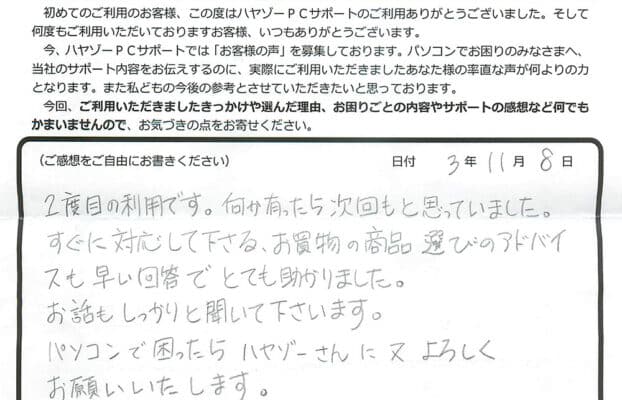 初めてのご利用のお客様、この度はハヤゾーPCサポートのご利用ありがとうございました。そして
何度もご利用いただいておりますお客様、いつもありがとうございます。
今、ハヤゾーPCサポートでは「お客様の声」を募集しております。パソコンでお困りのみなさまへ、
当社のサポート内容をお伝えするのに、実際にご利用いただきましたあなた様の率直な声が何よりの力
となります。また私どもの今後の参考とさせていただきたいと思っております。
今回、ご利用いただきましたきっかけや選んだ理由、お困りごとの内容やサポートの感想など何でも
かまいませんので、お気づきの点をお寄せください。
(ご感想をご自由にお書きください) 日付 3年11月8日
2度目の利用です。何か有ったら次回もと思っていました。
すぐに対応して下さる、お買物の商品選びのアドバイ
スも早い回答でとても助かりました。
お話もしっかりと聞いて下さいます。
パソコンで困ったらハヤゾーさんに又よろしく
お願いいたします。